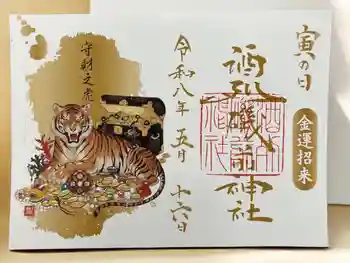 寅の日
金運招来
酒列磯前神社
令和八年 五月 十六日
守財之虎